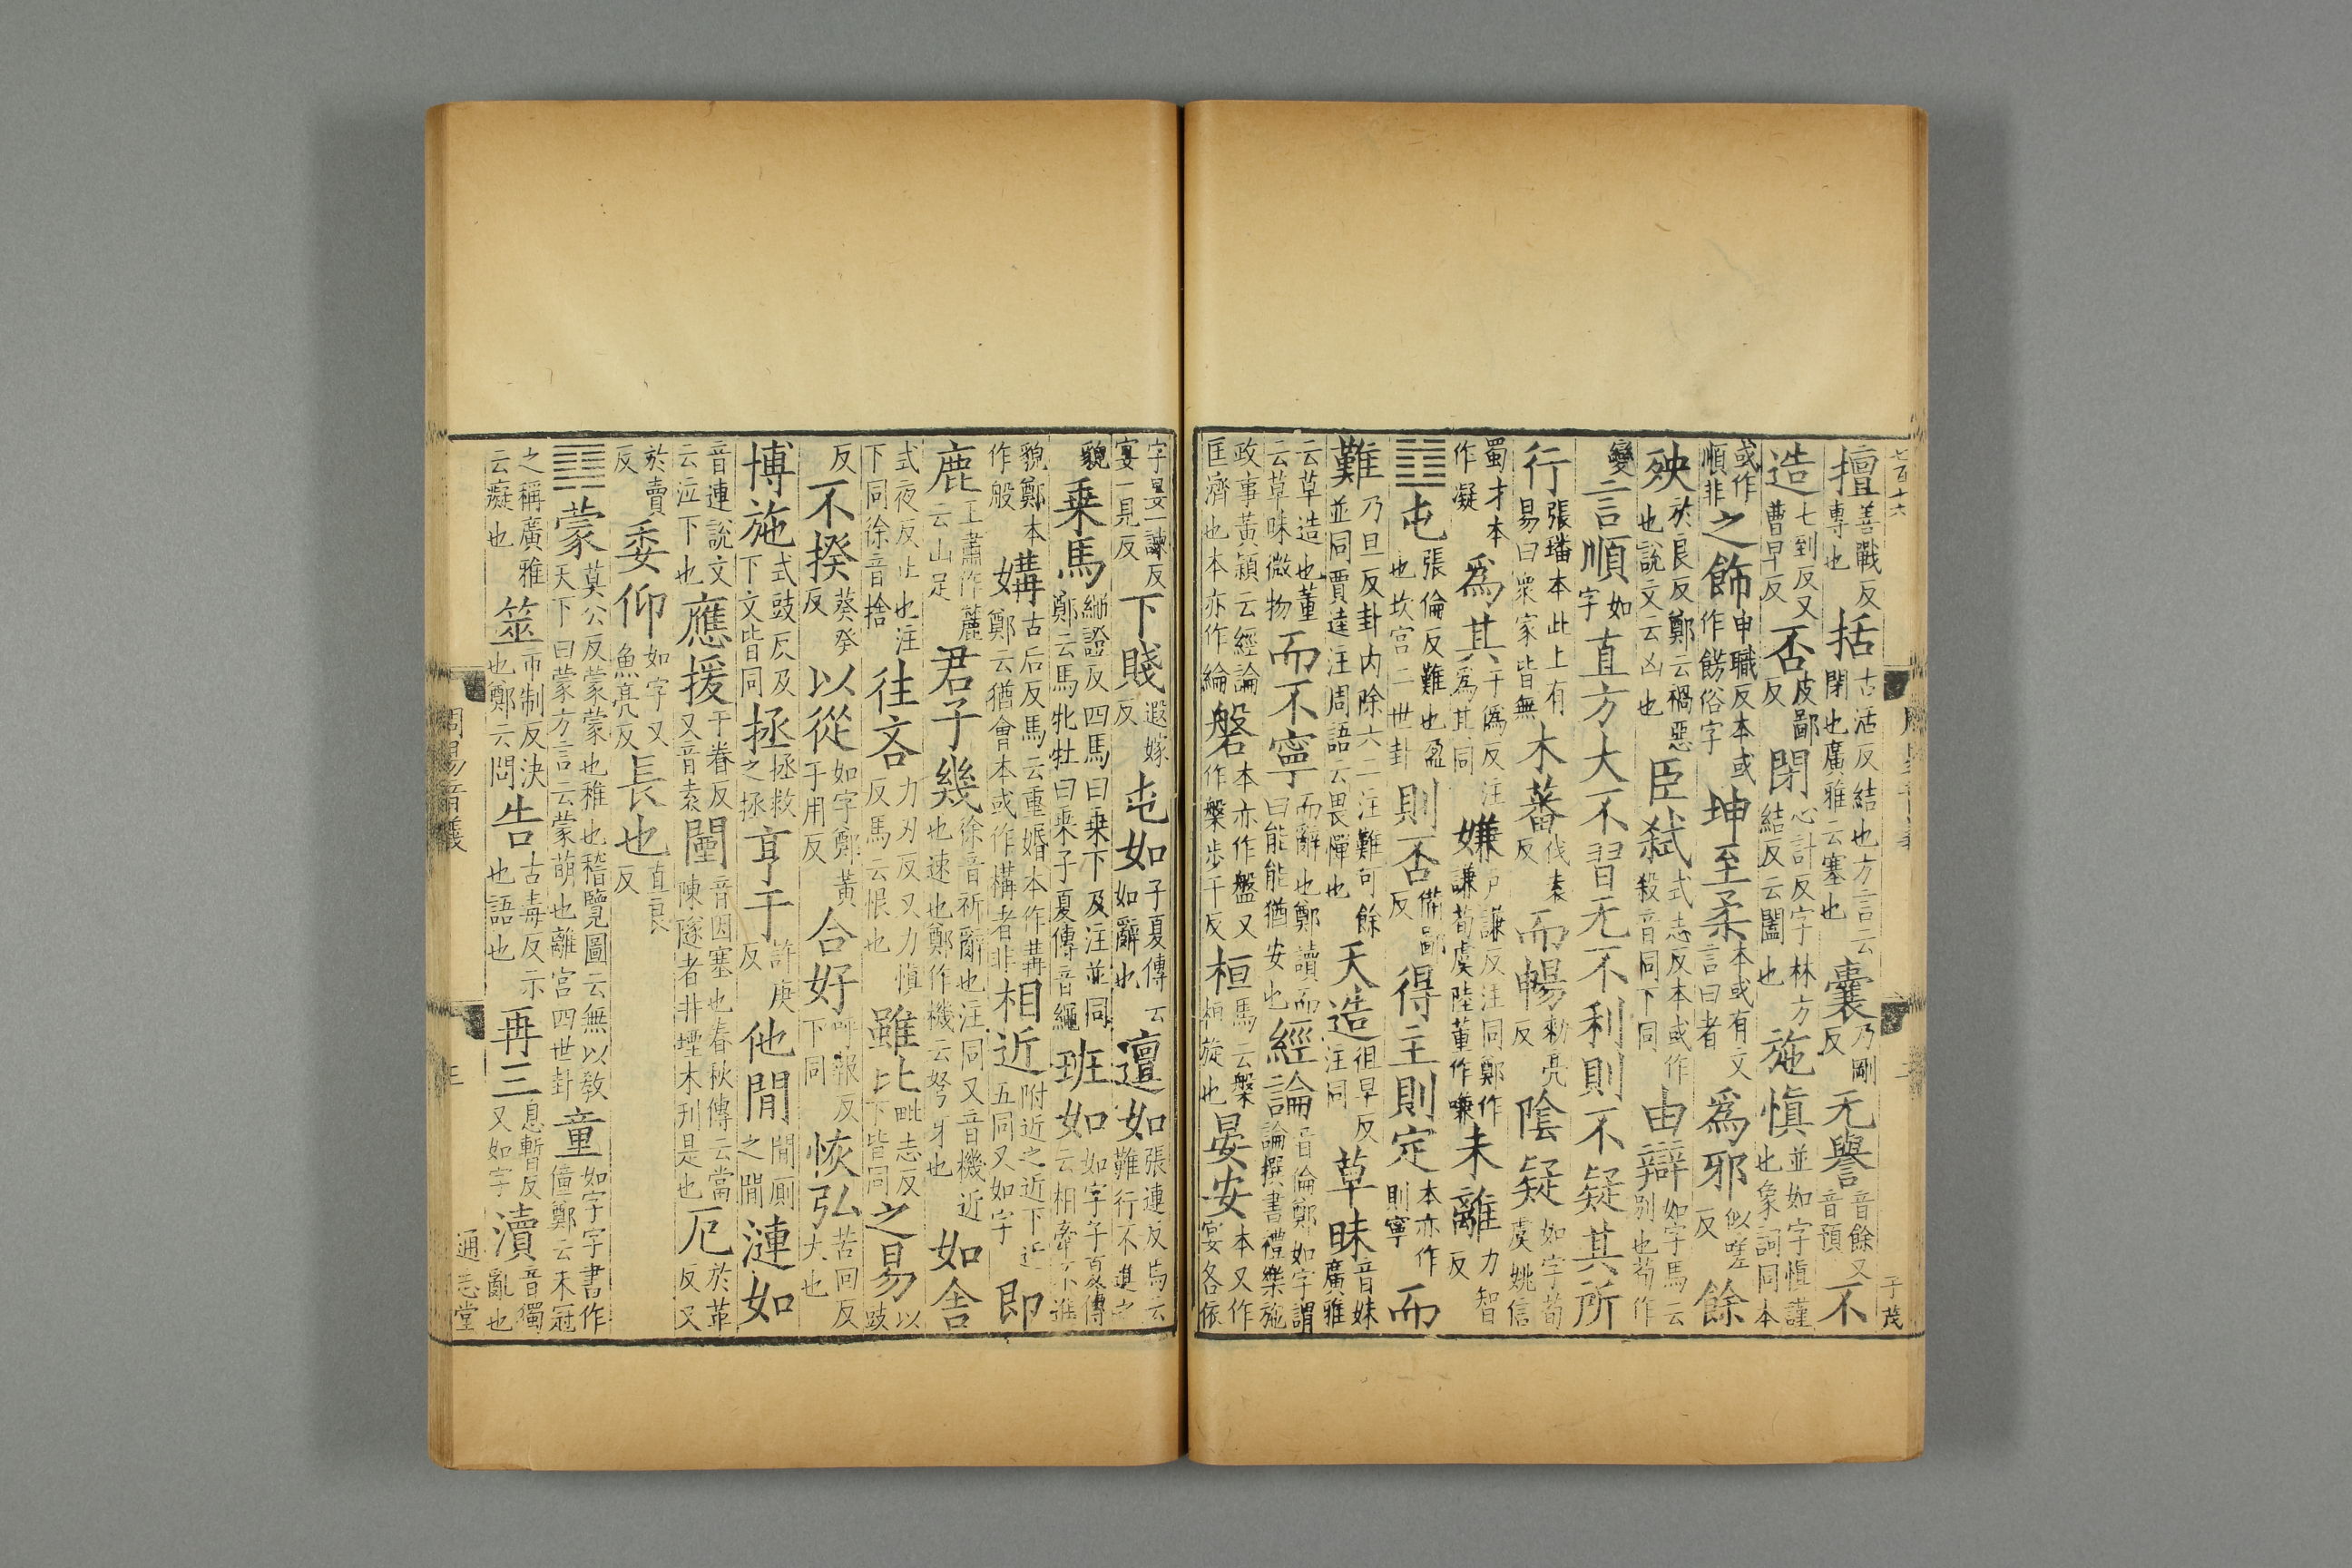 七百十六 子茂
擅善戰反專也括古活反結也方言云閉也廣雅云塞也囊乃剛反无譽音餘又音預不
造七到反又曹早反否皮鄙反閉心計反字林方結反云闔也施慎並如字慎謹也象詞同本
或作順非之飾申職反本或作餝俗字坤至柔本或有文言曰者爲邪似嗟反餘
殃於良反鄭云禍惡也說文云凶也臣弑式志反本或作殺音同下同由辯如字馬云別也荀作
變言順如字直方大不習无不利則不疑其所
行張璠本此上有易曰衆家皆無木蕃伐袁反而暢勑亮反陰疑如字荀虞姚信
蜀才本作凝爲其于僞反注爲其同嫌戸謙反注同鄭作謙荀虞陸董作嗛未離力智反
䷂屯張倫反難也盈也坎宮二世卦則否備鄙反得主則定本亦作則寧而
難乃旦反卦内除六二注難可餘並同賈逵注周語云畏憚也天造徂早反注同草昧音妹廣雅
云草造也董云草昧微物而不寧而辭也鄭讀而曰能能猶安也經論音倫鄭如字謂論撰書禮樂施
政事黃穎云經論匡濟也本亦作綸磐本亦作盤又作槃步干反桓馬云槃桓旋也晏安本又作宴各依
字晏一諫反宴一見反下賤遐嫁反屯如子夏傳云如辭也邅如張連反馬云難行不進之
貌乗馬繩證反四馬曰乗下及注並同鄭云馬牝牡曰乗子夏傳音繩班如如字子夏傳云相牽不進
貌鄭本作般媾古后反馬云重婚本作冓鄭云猶會本或作構者非相近附近之近下近五同又如字即
鹿王肅作麓云山足君子幾徐音祈辭也注同又音機近也速也鄭作機云弩牙也如舍
式夜反止也注下同徐音捨往吝力刃反又力慎反馬云恨也雖比毗志反下皆同之易以豉
反不揆葵癸反以從如字鄭黃于用反合好呼報反下同恢弘苦回反大也
博施式豉反及下文皆同拯拯救之拯亨于許庚反他閒閒厠之閒漣如
音連說文云泣下也應援于眷反又音袁闉音因塞也春秋傳云當陳隧者非堙木刋是也厄於革反又
於賣反委仰如字又魚亮反長也直良反
䷃蒙莫公反蒙蒙也稚也稽覽圖云無以敎天下曰蒙方言云蒙萌也離宮四世卦童如字字書作僮鄭云未冠
之稱廣雅云癡也筮市制反決也鄭云問告古毒反示也語也再三息暫反又如字瀆音獨亂也
周易音義 三 通志堂